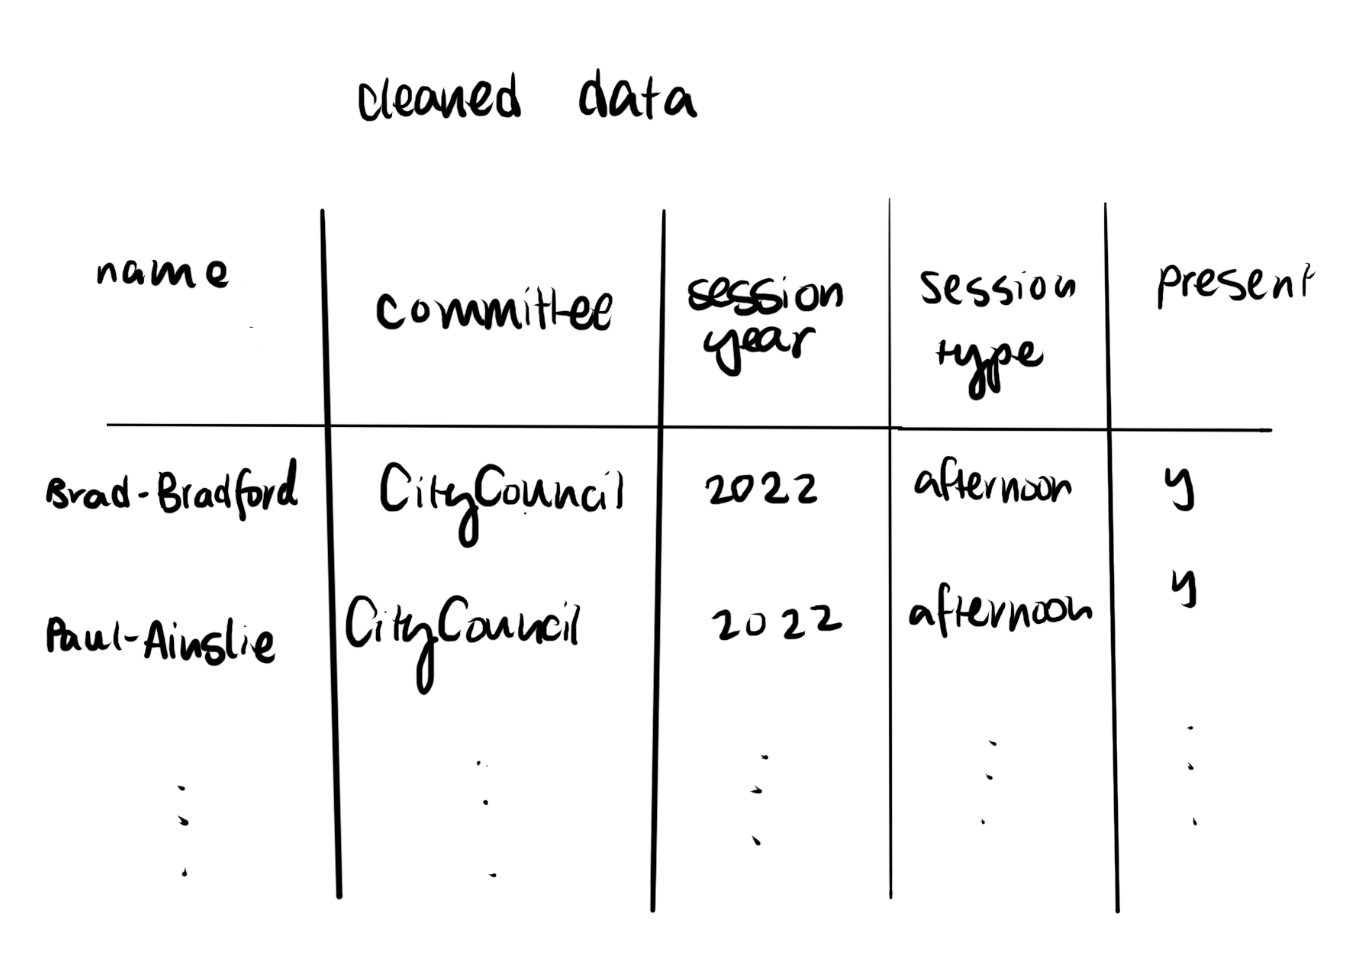 cleaned data
name
committee
session
year
session
type
present
Brad-Bradford CityCouncil 2022 afternoon y
Paul-Ainslie CityCouncil 2022 afternoon y